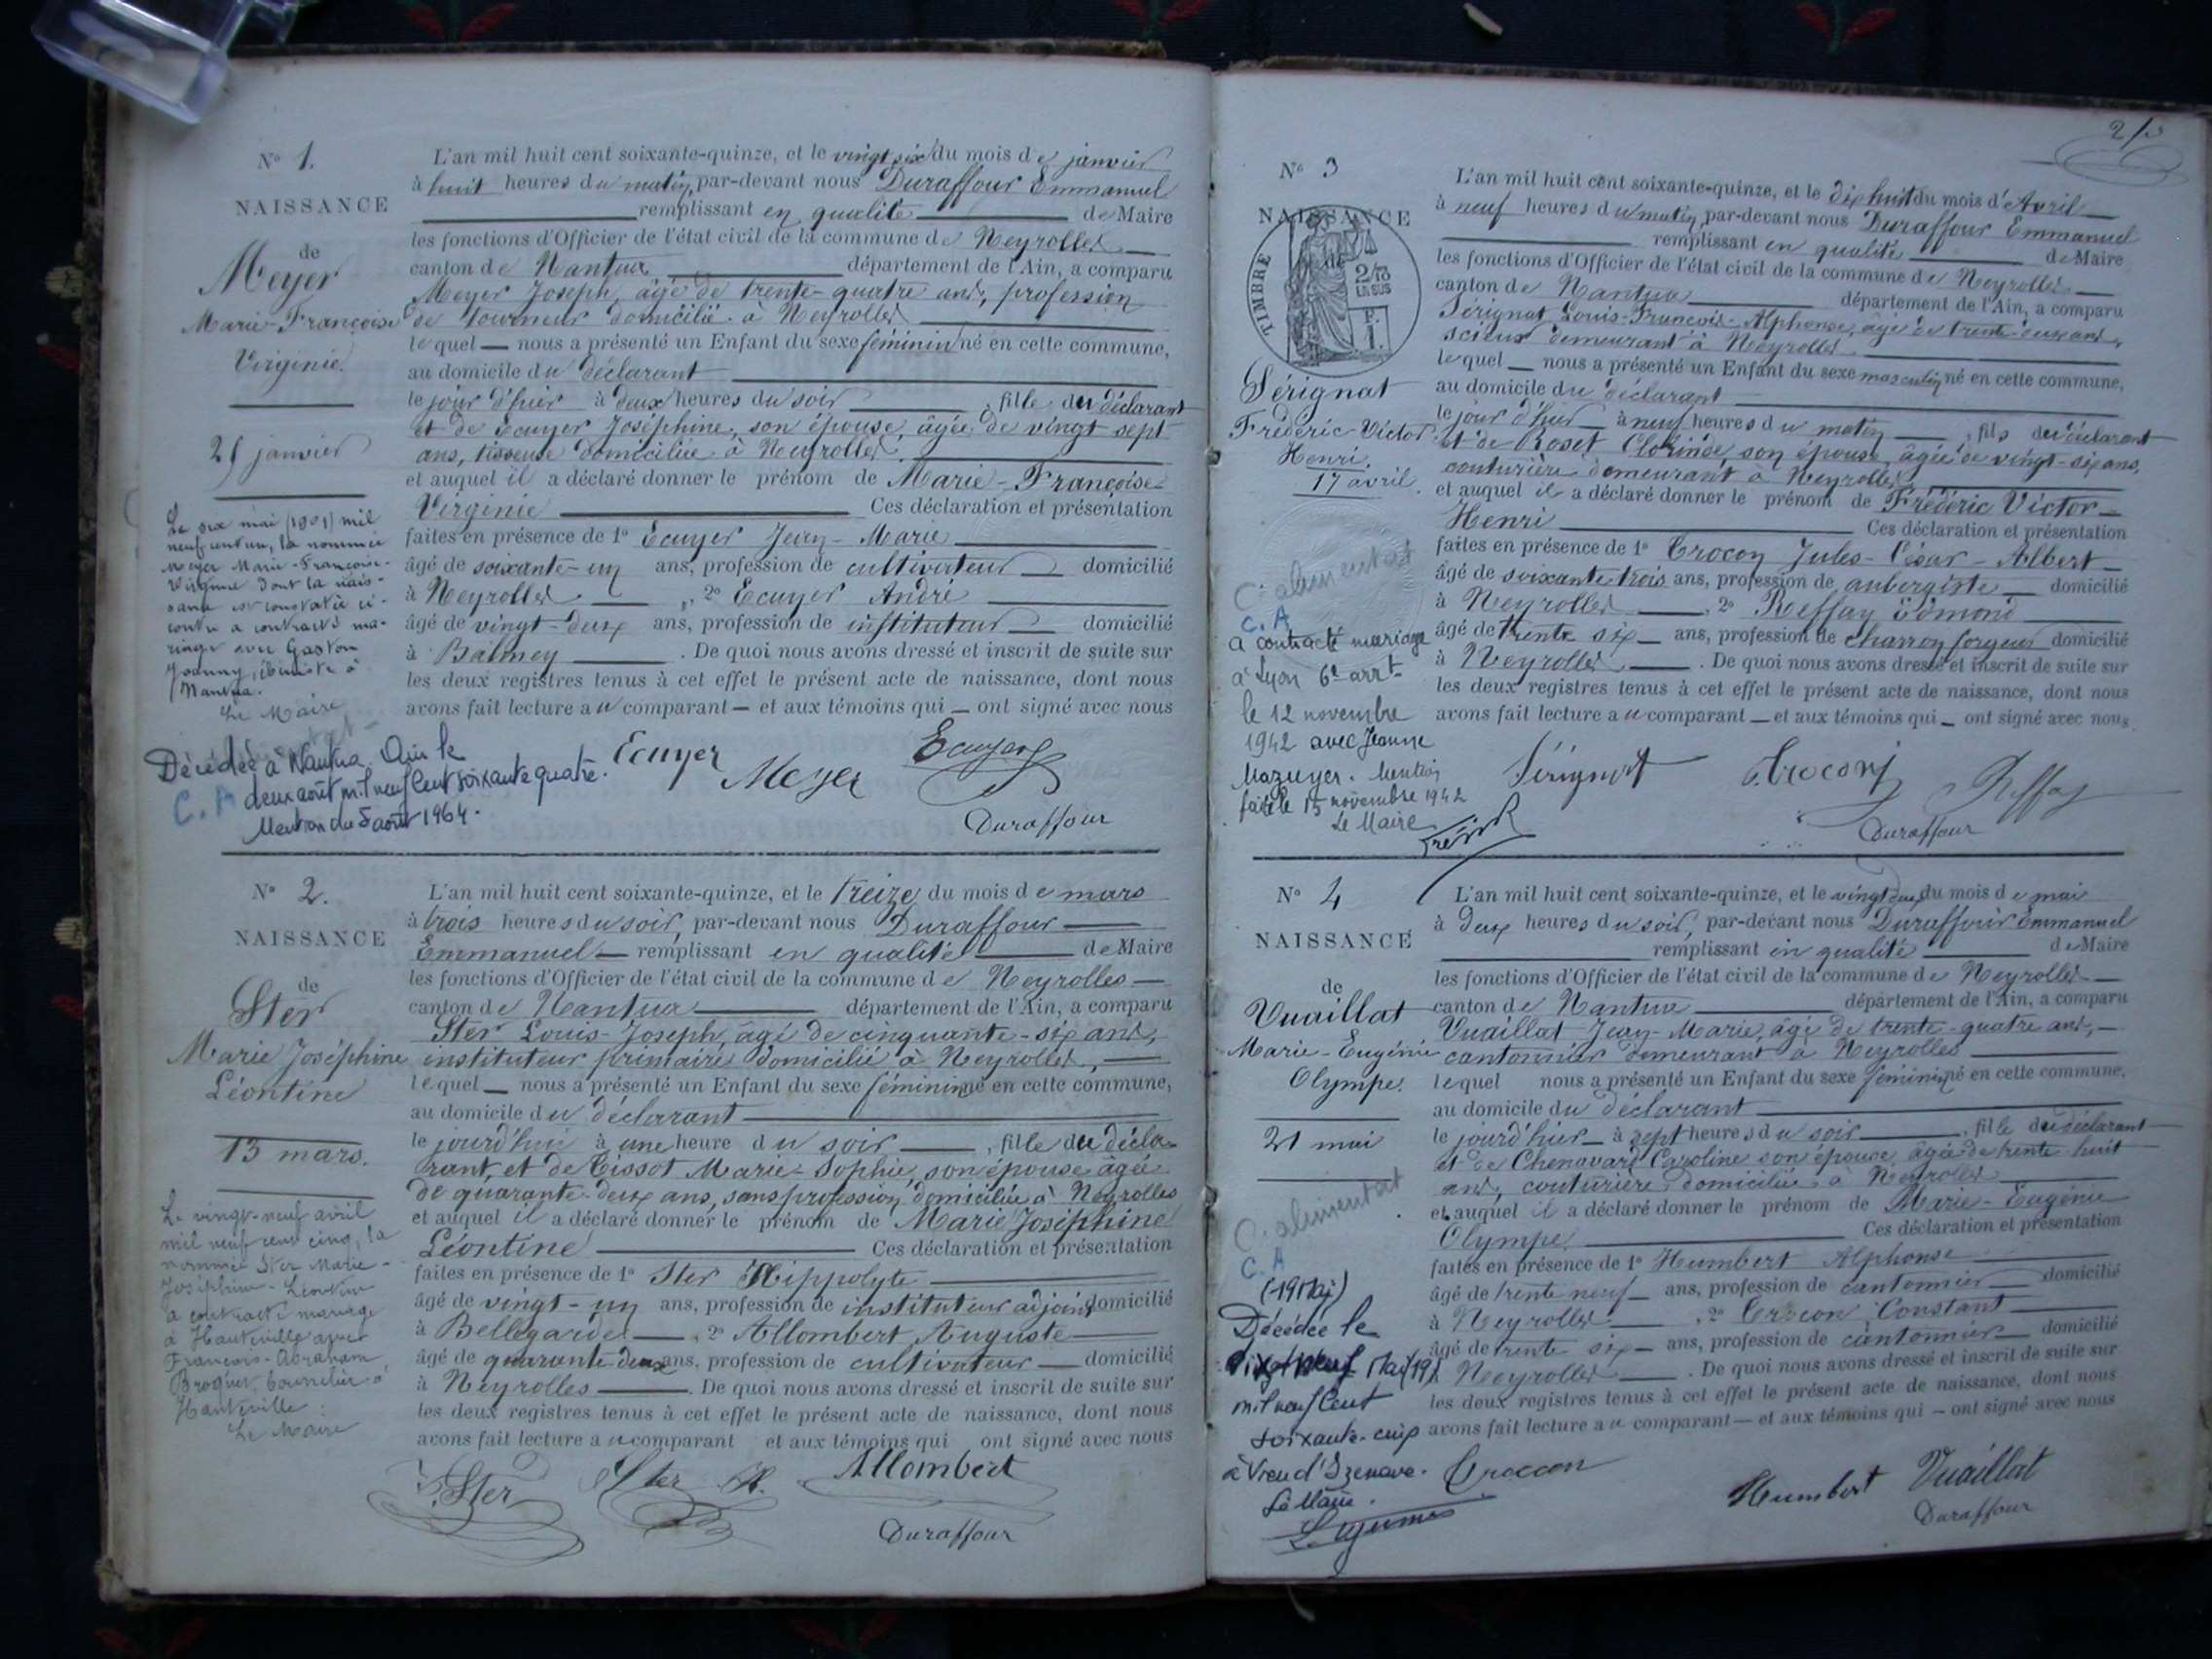 N° 1.
NAISSANCE
de
Meyer
Marie-Françoise
Virginie.
25 janvier
Le six mai (1901) mil
neuf cent un, la nommée
Meyer Marie-Françoise-
Virginie dont la nais-
sance est constatée ci-
contre a contracté ma-
riage avec Gaston
Joanny, ébéniste à
Nantua.
Le Maire
Décédée à Nantua Ain le
deux août mil neuf cent soixante quatre.
C. A
Mention du 5 août 1964.
L'an mil huit cent soixante-quinze, et le vingt six du mois de janvier
à huit heures du matin, par-devant nous Duraffour Emmanuel
remplissant en qualité de Maire
les fonctions d'Officier de l'état civil de la commune de Neyrolles
canton de Nantua département de l'Ain, a comparu
Meyer Joseph, âgé de trente-quatre ans, profession
de tourneur domicilié à Neyrolles
lequel nous a présenté un Enfant du sexe féminin né en cette commune,
au domicile du déclarant
le jour d'hier à deux heures du soir, fille du déclarant
et de Ecuyer Joséphine, son épouse, âgée de vingt sept
ans, tisseuse domiciliée à Neyrolles,
et auquel il a déclaré donner le prénom de Marie-Françoise-
Virginie Ces déclaration et présentation
faites en présence de 1° Ecuyer Jean-Marie
âgé de soixante-un ans, profession de cultivateur domicilié
à Neyrolles, 2° Ecuyer André
âgé de vingt-deux ans, profession de instituteur domicilié
à Balmey. De quoi nous avons dressé et inscrit de suite sur
les deux registres tenus à cet effet le présent acte de naissance, dont nous
avons fait lecture au comparant et aux témoins qui ont signé avec nous
Ecuyer Meyer Ecuyer
Duraffour
N° 2.
NAISSANCE
de
Ster
Marie Joséphine
Léontine
13 mars.
Le vingt-neuf avril
mil neuf cent cinq, la
nommée Ster Marie-
Joséphine-Léontine
a contracté mariage
à Hauteville avec
François-Abraham
à
Hauteville.
Le Maire
L'an mil huit cent soixante-quinze, et le treize du mois de mars
à trois heures du soir, par-devant nous Duraffour
Emmanuel remplissant en qualité de Maire
les fonctions d'Officier de l'état civil de la commune de Neyrolles
canton de Nantua département de l'Ain, a comparu
Ster Louis-Joseph, âgé de cinquante-six ans,
instituteur primaire domicilié à Neyrolles,
lequel nous a présenté un Enfant du sexe féminin né en cette commune,
au domicile du déclarant
le jourd'hui à une heure du soir, fille du décla-
rant, et de Tissot Marie-Sophie, son épouse âgée
de quarante-deux ans, sans profession, domiciliée à Neyrolles
et auquel il a déclaré donner le prénom de Marie Joséphine
Léontine Ces déclaration et présentation
faites en présence de 1° Ster Hippolyte
âgé de vingt-un ans, profession de instituteur adjoint domicilié
à Bellegarde, 2° Allombert Auguste
âgé de quarante deux ans, profession de cultivateur domicilié
à Neyrolles. De quoi nous avons dressé et inscrit de suite sur
les deux registres tenus à cet effet le présent acte de naissance, dont nous
avons fait lecture au comparant et aux témoins qui ont signé avec nous
Ster Ster H. Allombert
Duraffour
N° 3
NAISSANCE
TIMBRE
de
2/10
EN SUS
Sérignat
Frédéric-Victor
Henri.
17 avril.
C. alimentat
C. A
a contracté mariage
à Lyon 6e arrt
le 12 novembre
1942 avec Jeanne
Mazuyer. Mention
faite le 15 novembre 1942
Le Maire
L'an mil huit cent soixante-quinze, et le dix huit du mois d'Avril
à neuf heures du matin, par-devant nous Duraffour Emmanuel
remplissant en qualité de Maire
les fonctions d'Officier de l'état civil de la commune de Neyrolles
canton de Nantua département de l'Ain, a comparu
Sérignat Louis-François-Alphonse, âgé de trente-deux ans,
scieur demeurant à Neyrolles
lequel nous a présenté un Enfant du sexe masculin né en cette commune,
au domicile du déclarant
le jour d'hier à neuf heures du matin, fils du déclarant
et de Roset Clorinde, son épouse âgée de vingt-six ans,
couturière demeurant à Neyrolles
et auquel il a déclaré donner le prénom de Frédéric Victor
Henri Ces déclaration et présentation
faites en présence de 1° Crocon Jules-César-Albert
âgé de soixante trois ans, profession de aubergiste domicilié
à Neyrolles, 2° Reffay Edmond
âgé de trente six ans, profession de charron forgeur domicilié
à Neyrolles. De quoi nous avons dressé et inscrit de suite sur
les deux registres tenus à cet effet le présent acte de naissance, dont nous
avons fait lecture au comparant et aux témoins qui ont signé avec nous.
Sérignat Crocon Reffay
Duraffour
N° 4
NAISSANCE
de
Vuaillat
Marie-Eugénie
Olympe.
21 mai
C. alimentat
C. A
(19 Mai)
Décédée le
mil neuf cent
soixante-cinq
à Vieu d'Izenave.
Le Maire.
L'an mil huit cent soixante-quinze, et le vingt deux du mois de mai
à deux heures du soir, par-devant nous Duraffour Emmanuel
remplissant en qualité de Maire
les fonctions d'Officier de l'état civil de la commune de Neyrolles
canton de Nantua département de l'Ain, a comparu
Vuaillat Jean-Marie, âgé de trente-quatre ans,
cantonnier demeurant à Neyrolles
lequel nous a présenté un Enfant du sexe féminin né en cette commune,
au domicile du déclarant
le jourd'hier à sept heures du soir, fille du déclarant
et de Chenavard Caroline son épouse âgée de trente-huit
ans, couturière domiciliée à Neyrolles
et auquel il a déclaré donner le prénom de Marie-Eugénie
Olympe. Ces déclaration et présentation
faites en présence de 1° Humbert Alphonse
âgé de trente neuf ans, profession de cantonnier domicilié
à Neyrolles, 2° Crocon Constant
âgé de trente six ans, profession de cantonnier domicilié
à Neyrolles. De quoi nous avons dressé et inscrit de suite sur
les deux registres tenus à cet effet le présent acte de naissance, dont nous
avons fait lecture au comparant et aux témoins qui ont signé avec nous
Croccon Humbert Vuaillat
Duraffour